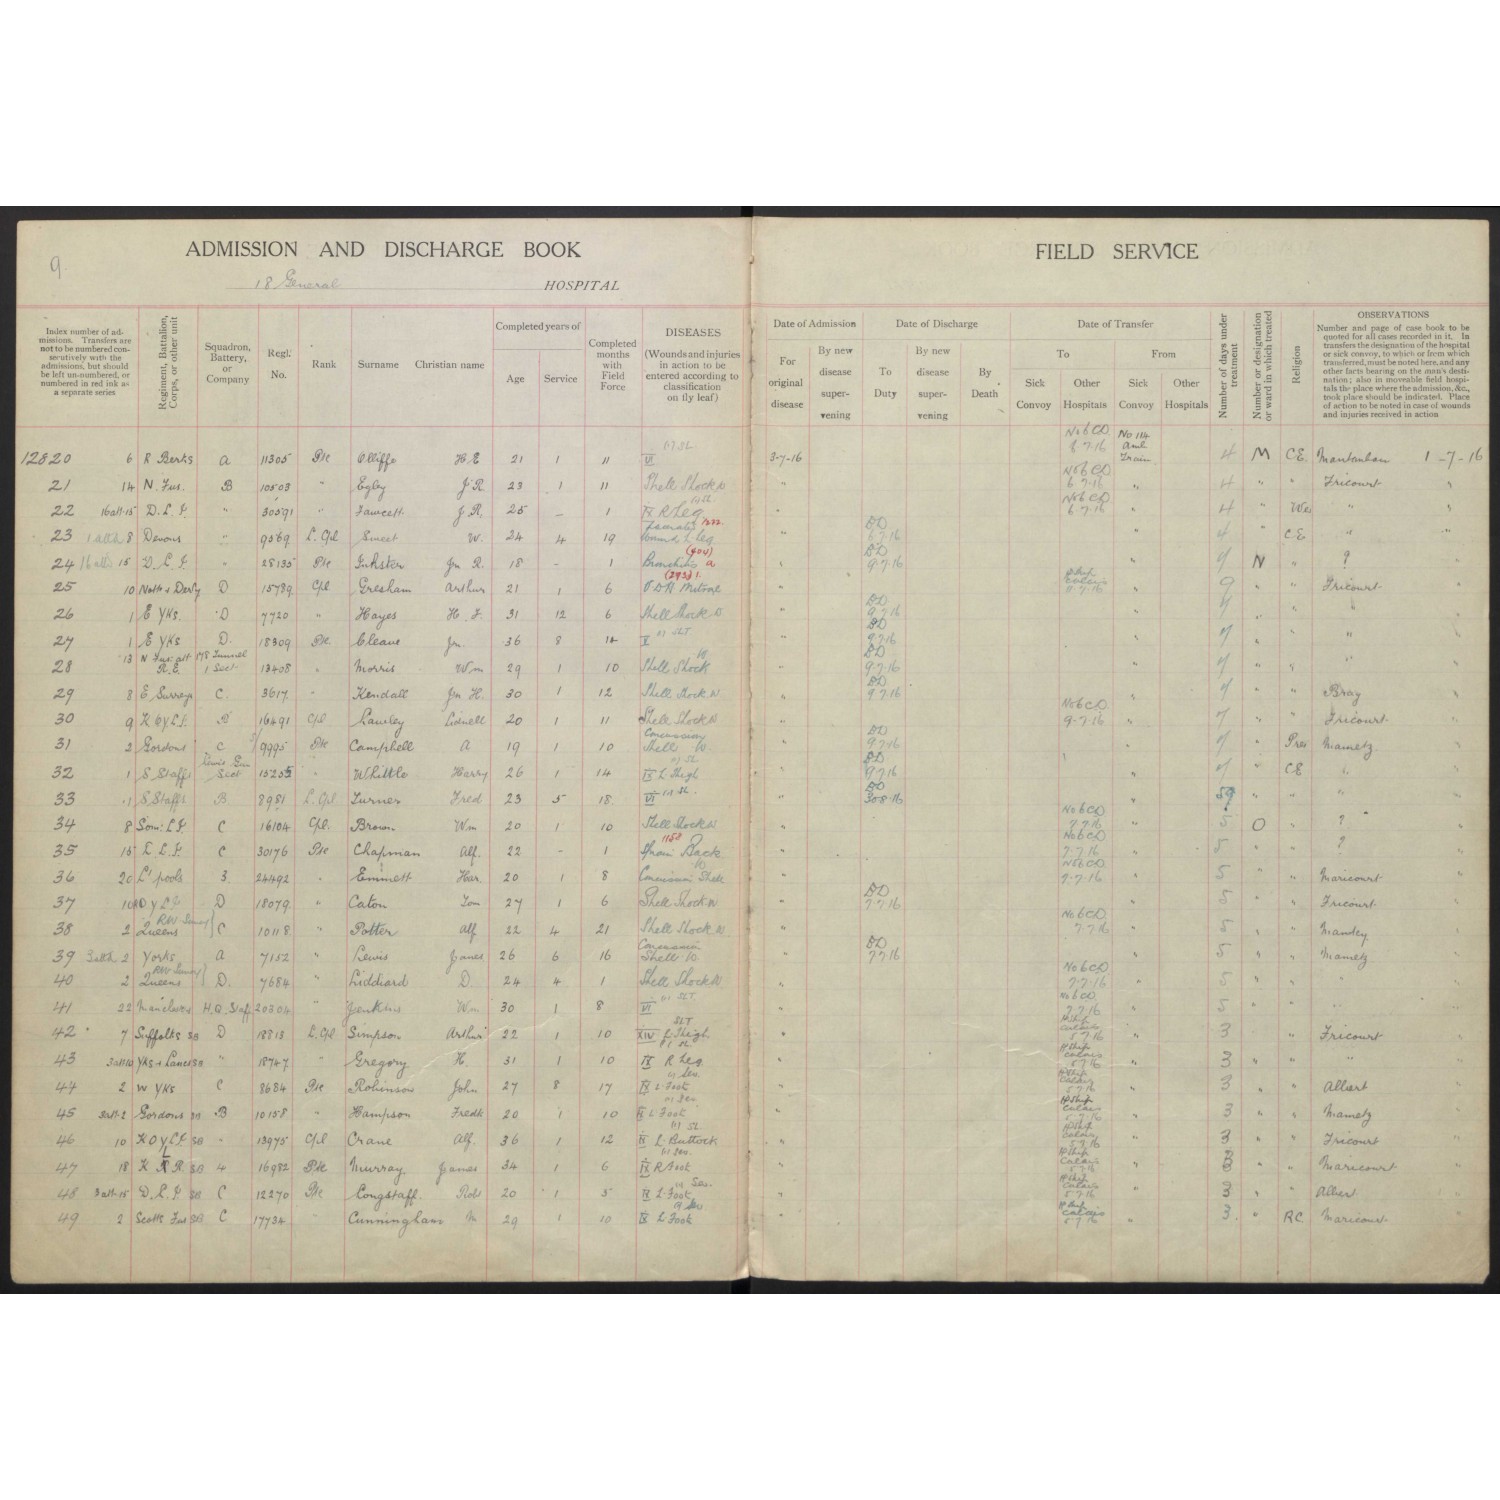 9
ADMISSION AND DISCHARGE BOOK
FIELD SERVICE
18 General HOSPITAL
Index number of admissions. Transfers are not to be numbered consecutively with the admissions, but should be left un-numbered, or numbered in red ink as a separate series
Regiment, Battalion, Corps, or other unit
Squadron, Battery, or Company
Regl. No.
Rank
Surname Christian name
Completed years of
Age
Service
Completed months with Field Force
DISEASES
(Wounds and injuries in action to be entered according to classification on fly leaf)
Date of Admission
For original disease
By new disease supervening
Date of Discharge
To Duty
By new disease supervening
By Death
Date of Transfer
To
From
Sick Convoy
Other Hospitals
Sick Convoy
Other Hospitals
Number of days under treatment
Number or designation or ward in which treated
Religion
OBSERVATIONS
Number and page of case book to be quoted for all cases recorded in it. In transfers the designation of the hospital or sick convoy, to which or from which transferred, must be noted here, and any other facts bearing on the man's destination; also in moveable field hospitals the place where the admission, &c., took place should be indicated. Place of action to be noted in case of wounds and injuries received in action
12820 6 R Berks A 11305 Pte Olliffe H.E 21 1 11 VI 3-7-16 No 6 CD 8 7.16 No 114 Amb Train 4 M CE 1-7-16
21 14 N. Fus. B 10503 " Egley J R 23 1 11 Shell Shock W " No 6 CD 6 7.16 " 4 " " Fricourt "
22 16 att 15 D.L.I. " 30591 " Fawcett J R. 25 - 1 IX R Leg " No 6 CD 6.7.16 " 4 " Wes " "
23 8 Devons " 9569 L. Cpl Sweet W. 24 4 19 Wound L Leg " DD 6 7.16 4 " CE " "
24 15 D.L.I. " 28135 Pte Inkster Jn R. 18 - 1 Bronchitis " DD 9.7.16 " 7 N " ? "
25 10 Notts + Derby D 15789 Cpl Gresham Arthur 21 1 6 V.D.H Mitral " H Ship Calais " 9 " " Fricourt "
26 1 E Yks. D 7720 " Hayes H. J. 31 12 6 Shell Shock W " DD 9.7.16 " 7 " " "
27 1 E Yks D. 18309 Pte. Cleave Jn. 36 8 14 " DD 9.7.16 " 7 " " " "
28 13 N Fus: att R.E. 178 Tunnel 1 Sect 13408 " Morris Wm 29 1 10 Shell Shock W " DD 9 7.16 " 7 " " " "
29 8 E. Surreys C. 3617. " Kendall Jn H. 30 1 12 Shell Shock W " DD 9 7.16 " 7 " " Bray "
30 9 K.O.Y.L.I. B 16491 Cpl Lawley 20 1 11 Shell Shock W " No 6 CD 9-7.16 " 7 " " Fricourt "
31 2 Gordons C 9995 Pte Campbell A 19 1 10 Concussion Shell W. " DD 9.7.16 " 7 " Pres Mametz "
32 1 S. Staffs Lewis Gun Sect " Whittle Harry 26 1 14 IX L Thigh " DD 9.7.16 7 " CE " "
33 1 S. Staffs B 8981 L. Cpl Turner Fred 23 5 18. VI " DD 30.8.16 " 59 " " " "
34 8 Som: L.I. C 16104 Cpl. Brown Wm 20 1 10 Shell Shock W " No 6 CD 7 7.16 " 5 O " ? "
35 15 D.L.I. C 30176 Pte Chapman Alf. 22 - 1 1158 Sprain Back " No 6 CD 7.7.16 " 5 " " ? "
36 20 L'pools 3. 24492 " Emmett Har. 20 1 8 Concussion Shell W " No 6 CD 7.7.16 " 5 " " Maricourt "
37 10 K.O.Y.L.I. D 18079. " Caton Tom 27 1 6 Shell Shock W " DD 7.7.16 " 5 " " Fricourt "
38 2 Queens RW Surrey C 10118 " Potter Alf 22 4 21 Shell Shock W " No 6 CD 7 7.16 " 5 " " "
39 2 Yorks A 7152 " Lewis James 26 6 16 Concussion Shell W. " DD 7 7 16 " 5 " " Mametz "
40 2 Queens RW Surrey D. 7684 " Liddiard D. 24 4 1 Shell Shock W " No 6 CD 7.7.16 " 5 " " " "
41 22 Manchers H.Q. Staff 20304 " Jenkins Wm 30 1 8 VI " No 6 CD 7.7.16 " 5 " " "
42 7 Suffolks SB D 18813 L. Cpl Simpson Arthur 22 1 10 XIV L Thigh SLT " H Ship Calais 5 7 16 " 3 " " Fricourt "
43 Yks + Lancs SB " 18747 " Gregory H. 31 1 10 IX R Leg " H Ship Calais 5 7.16 " 3 " " " "
44 2 W Yks C 8634 Pte Robinson John 27 8 17 IX L Foot " H Ship Calais 5 7 16 " 3 " " Albert "
45 Gordons SB B 10158 " Hampson Fredk 20 1 10 IX L Foot " H Ship Calais 5.7.16 " 3 " " Mametz "
46 10 K O Y L I SB " 13975 Cpl Crane Alf. 36 1 12 IX L. Buttock " H Ship Calais 5.7.16 " 3 " " Fricourt "
47 18 K R R SB 4 16982 Pte Murray. James 34 1 6 IX R Foot " H Ship Calais 5.7.16 " 3 " " Maricourt "
48 3 att 15 D.L.I SB C 12270 Pte Longstaff. Robt 20 1 5 IX L. Foot " H Ship Calais 5 7.16 " 3 " " Albert
49 2 Scotts Fus SB C 17734 " Cunningham M 29 1 10 IX L Foot " H Ship Calais 5 7 16 " 3. " RC. Maricourt "